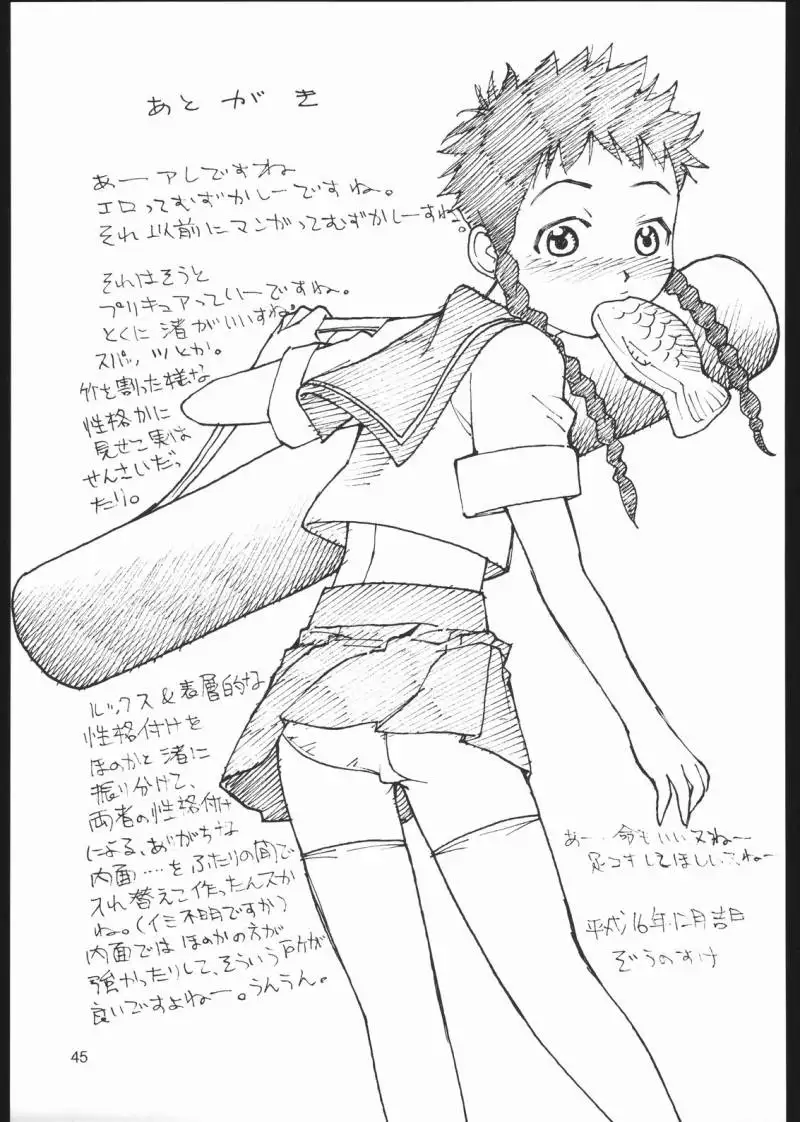 あとがき
あーアレですね
エロってむずかしーですね。
それ以前にマンガってむずかしーすね。
それはそうと
プリキュアっていーですね。
とくに渚がいいすね。
スパッツとか。
竹を割った様な
性格かに
見せて実は
せんさいだっ
たり。
ルックス&表層的な
性格付けを
ほのかと渚に
振り分けて、
両者の性格付け
による、ありがちな
内面‥‥をふたりの間で
入れ替えて作ったんスか
ね。(イミ不明ですか)
内面ではほのかの方が
強かったりして、そういう所が
良いですよねー。うんうん。
あー‥命もいいスねー
足コキしてほしいスねー
平成16年12月吉日
ぞうのすけ
45